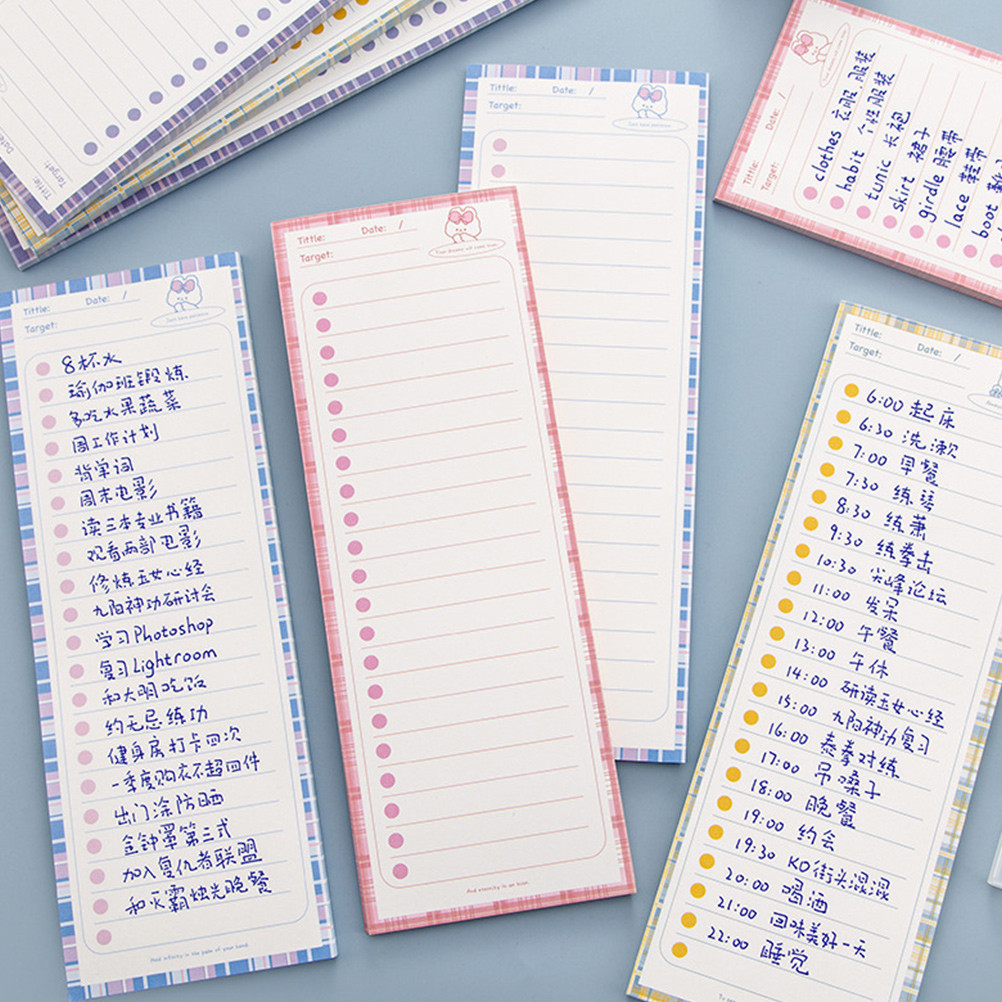 Tittle:
Date: /
Target:
Just have patience.
8杯水
瑜伽班锻炼
多吃水果蔬菜
周工作计划
背单词
周末电影
读三本专业书籍
观看两部电影
修炼玉女心经
九阳神功研讨会
学习Photoshop
复习Lightroom
和大明吃饭
约无忌练功
健身房打卡四次
一季度购衣不超四件
出门涂防晒
金钟罩第三式
加入复仇者联盟
和灭霸烛光晚餐
Hold infinity in the palm of your hand.
Tittle:
Date: /
Target:
Your dreams will come true.
And eternity in an hour.
Tittle:
Date: /
Target:
Just have patience.
Tittle:
Date: /
Target:
clothes 衣服 服装
habit 个性服装
tunic 长袍
skirt 裙子
girdle 腰带
lace 鞋带
boot
Tittle:
Date: /
Target:
6:00 起床
6:30 洗漱
7:00 早餐
7:30 练琴
8:30 练萧
9:30 练拳击
10:30 尖峰论坛
11:00 发呆
12:00 午餐
13:00 午休
14:00 研读玉女心经
15:00 九阳神功复习
16:00 泰拳对练
17:00 吊嗓子
18:00 晚餐
19:00 约会
19:30 KO街头混混
20:00 喝酒
21:00 回味美好一天
22:00 睡觉
Tittle:
Date:
Target: